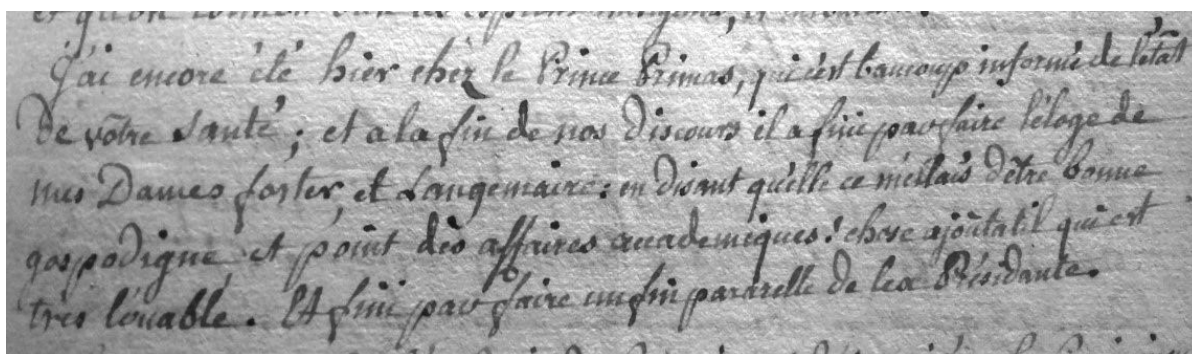 J'ai encore été hier chèz le Prince Primas, qui s'est baucoup informé de l'état
de vôtre santé; et a la fin de nos discours il a fini par faire l'éloge de
mes Dames forster, et Langemaire: en disant qu'elle ce mêlais d'être bonne
gospodigne et point dès affaires accademiques! chose ajoûtatil qui est
très loüable. Et fini par faire un fin pararelle de la Présidante.